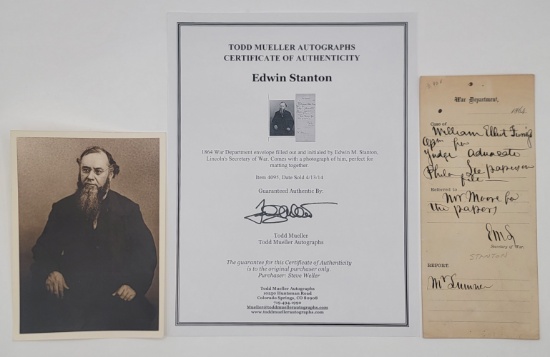 TODD MUELLER AUTOGRAPHS
CERTIFICATE OF AUTHENTICITY
Edwin Stanton
1864 War Department envelope filled out and initialed by Edwin M. Stanton,
Lincoln's Secretary of War. Comes with a photograph of him, perfect for
matting together.
Item #893, Date Sold 4/11/14
Guaranteed Authentic By:
Todd Mueller
Todd Mueller Autographs
The guarantee for this Certificate of Authenticity
is to the original purchaser only
Purchaser: Steve Weller
Todd Mueller Autographs
Colorado Springs, CO 80908
www.toddmuellerautographs.com
War Department,
Case of
William Elliot
for
Judge Advocate
Phila
Referred to
Mr Moore for
the papers
EMS
Secretary of War.
STANTON
REPORT:
Mr Sumner